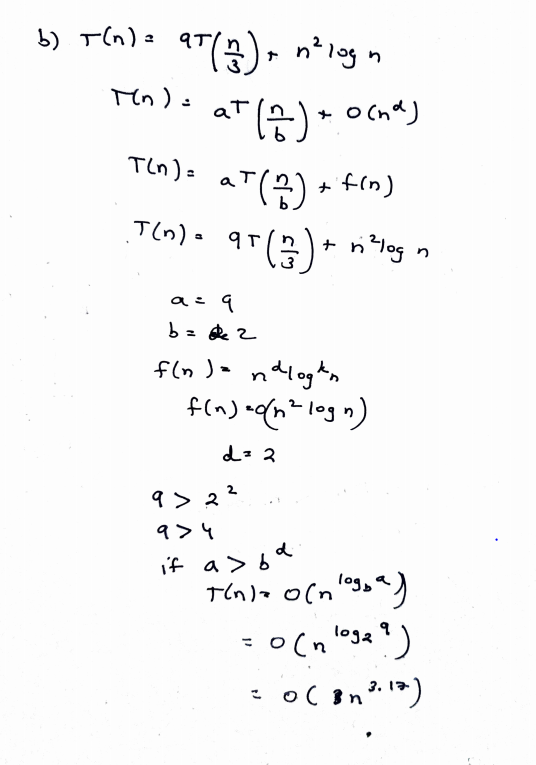 b) T(n) = 9T(n/3) + n² log n
T(n) = aT(n/b) + O(n^d)
T(n) = aT(n/b) + f(n)
T(n) = 9T(n/3) + n² log n
a = 9
b = 2
f(n) = n^d log^k n
f(n) = O(n² log n)
d = 2
9 > 2²
9 > 4
if a > b^d
T(n) = O(n^log_b a)
= O(n^log_2 9)
= O(n^3.17)